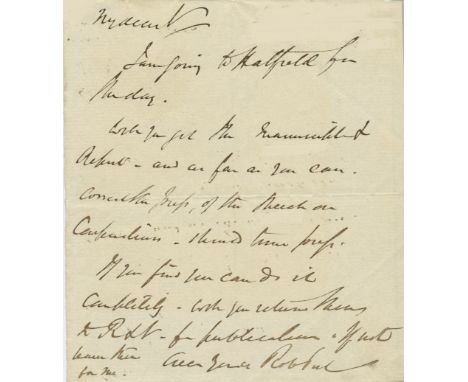 My dear V
I am going to Hatfield for
Sunday.
Will you get the
Report - and as far as you can.
correct the press, of the Speech on
- should time press.
If you find you can do it
completely - will you return them
to R&N - for publication. If not
leave them
for me.